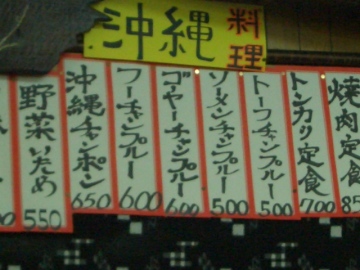 沖縄料理
焼肉定食
トンカツ定食 700
トーフチャンプルー 500
ソーメンチャンプルー 500
ゴーヤーチャンプルー 600
フーチャンプルー 600
沖縄チャンポン 650
野菜いため 550